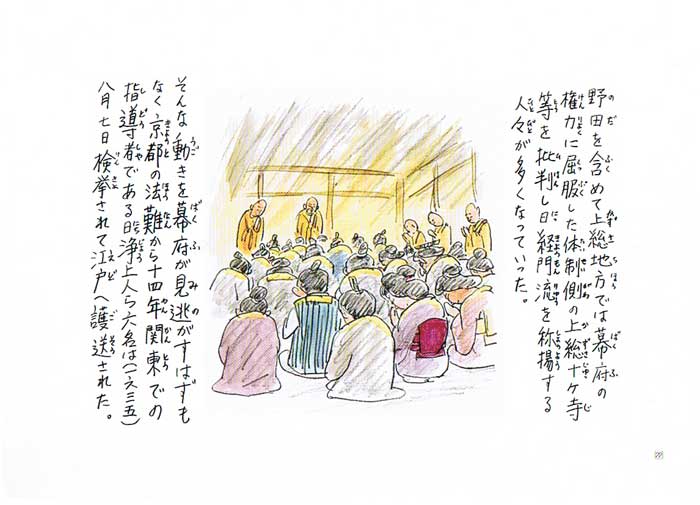 野田を含めて上総地方では幕府の
権力に屈服した体制側の上総十ケ寺
等を批判し日経門流を称揚する
人々が多くなっていった。
そんな動きを幕府が見逃がすはずも
なく、京都の法難から十四年関東での
指導者である日浄上人ら六名は(一六三五)
八月七日検挙されて江戸へ護送された。